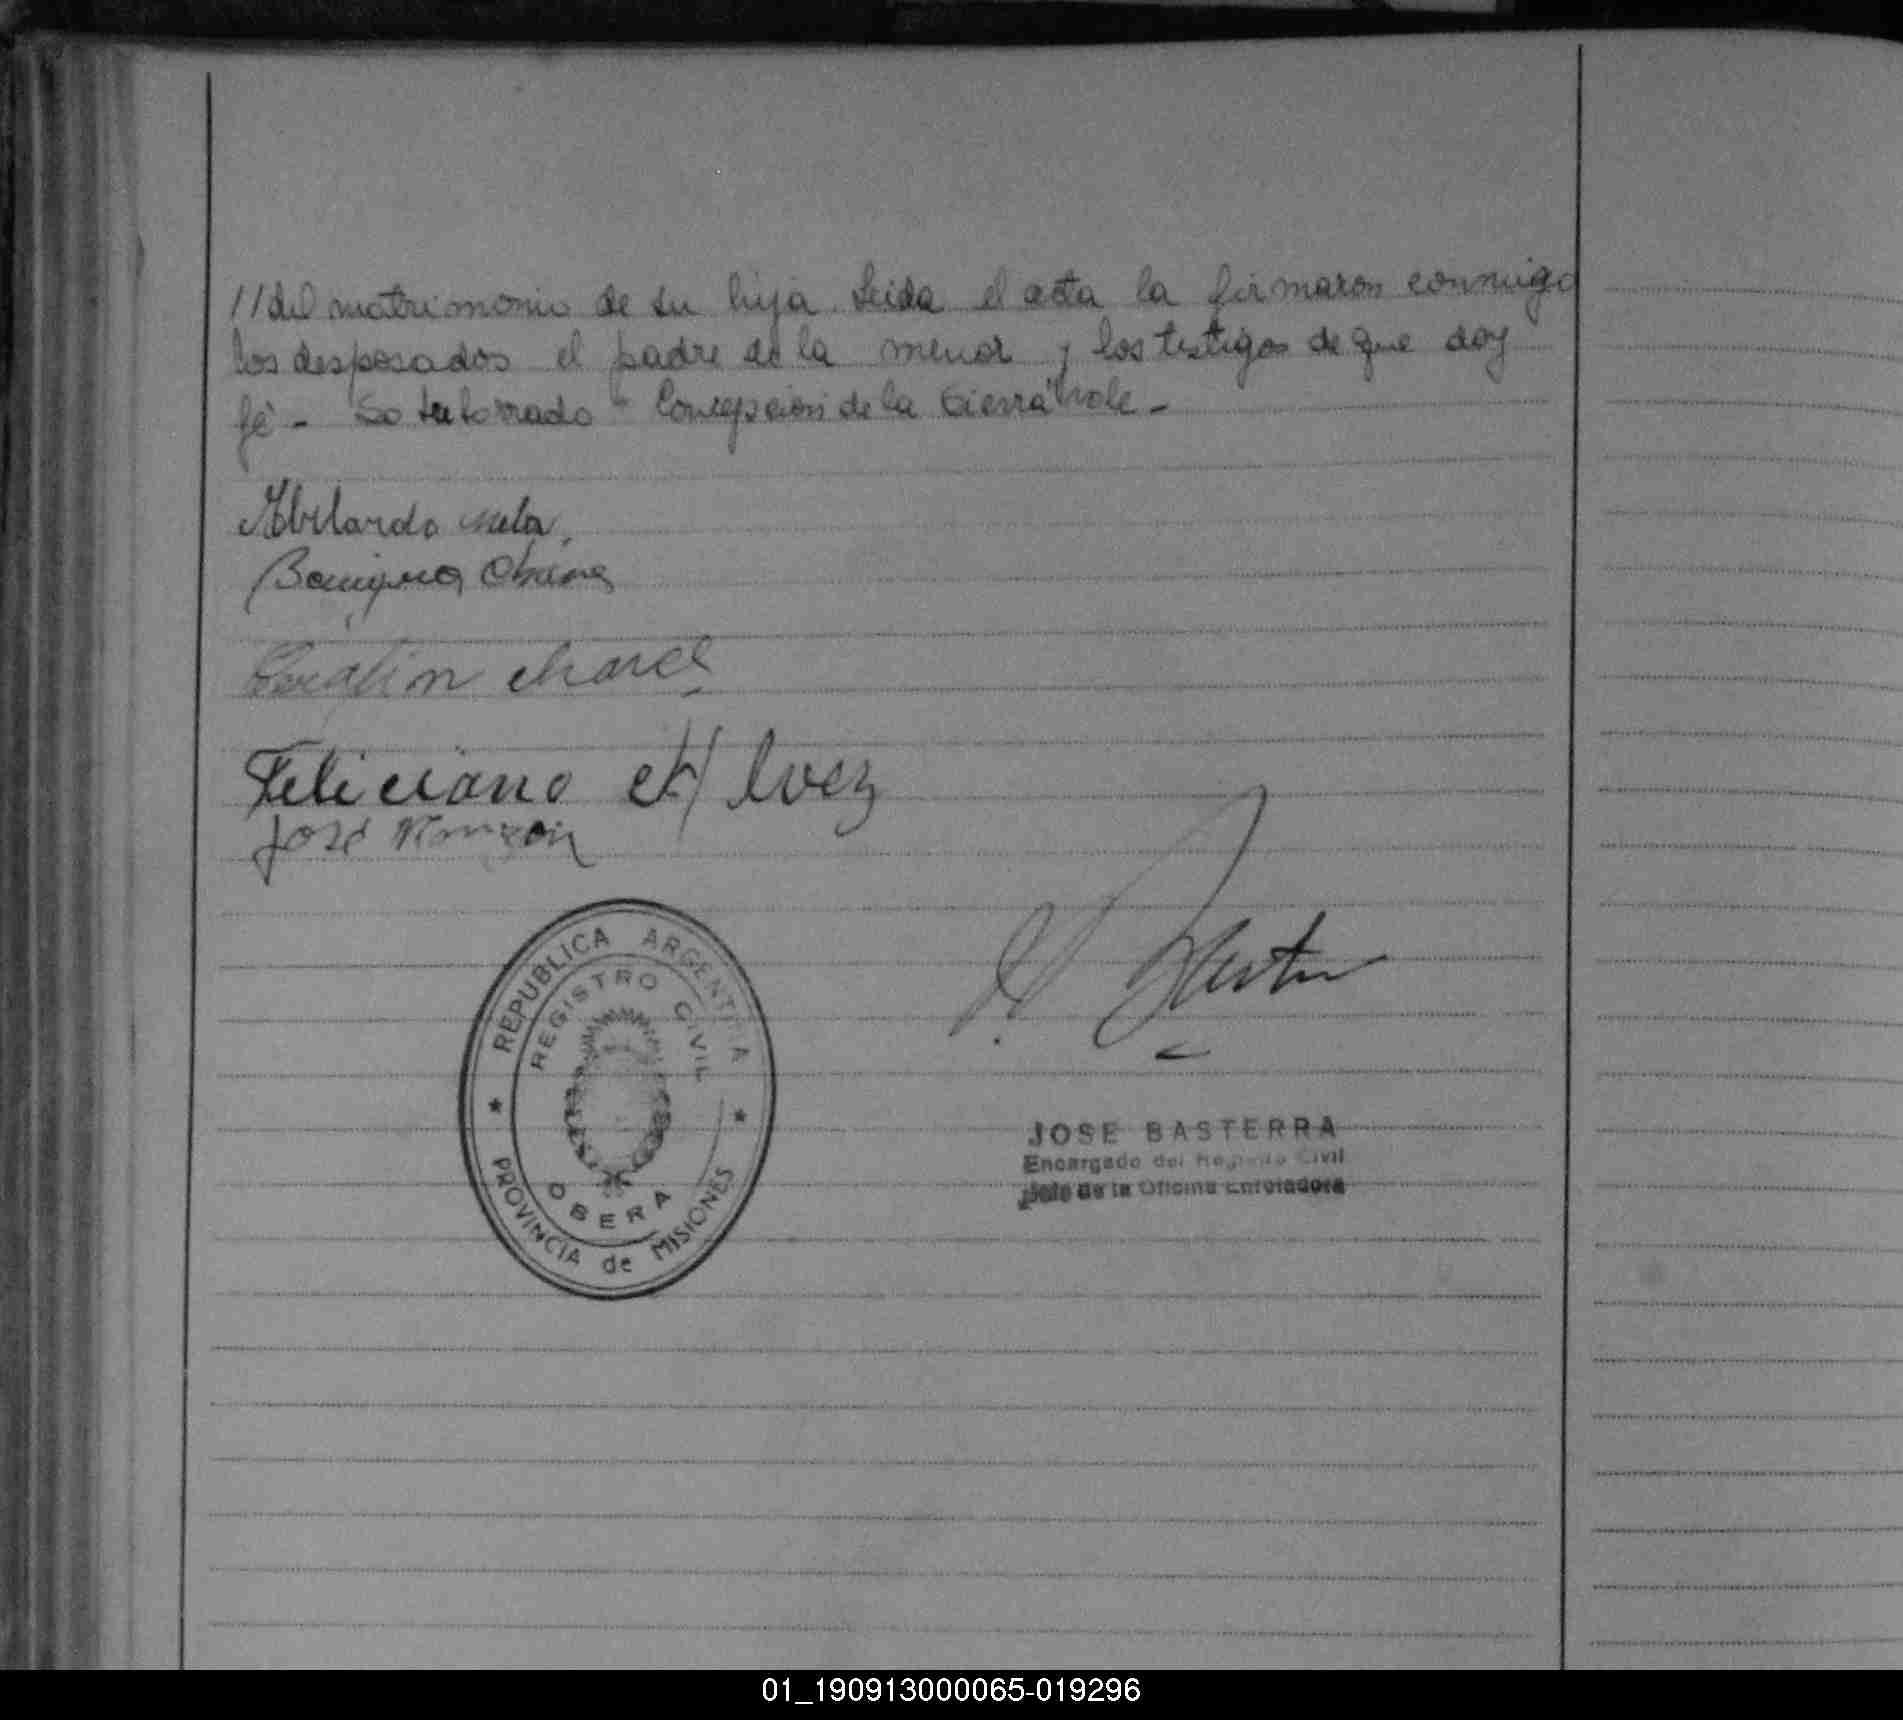 //del matrimonio de su hija. Leida el acta la firmaron conmigo
los desposados el padre de la menor y los testigos de que doy
fé - So te borrado " Concepcion de la Sierra" vale -
Abelardo
Benigna
Serafin Chavez
Feliciano Alvez
José
REPUBLICA ARGENTINA
REGISTRO CIVIL
OBERA
PROVINCIA de MISIONES
JOSE BASTERRA
Encargado del Registro Civil
Jefe de la Oficina Enroladora
01_190913000065-019296